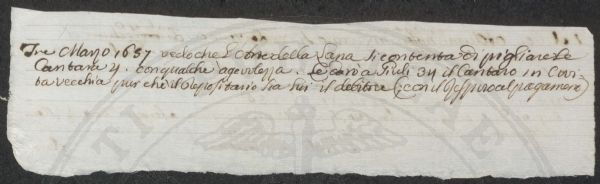 Tre Marzo 1657 vedo che l'Conte della Lana si contenta di pigliare le
Cantara 4. con qualche agevolezza. le cara à Giuli 34 il Cantaro in Civi-
ta vecchia pur che il Depositario sia lui il debitre (con il